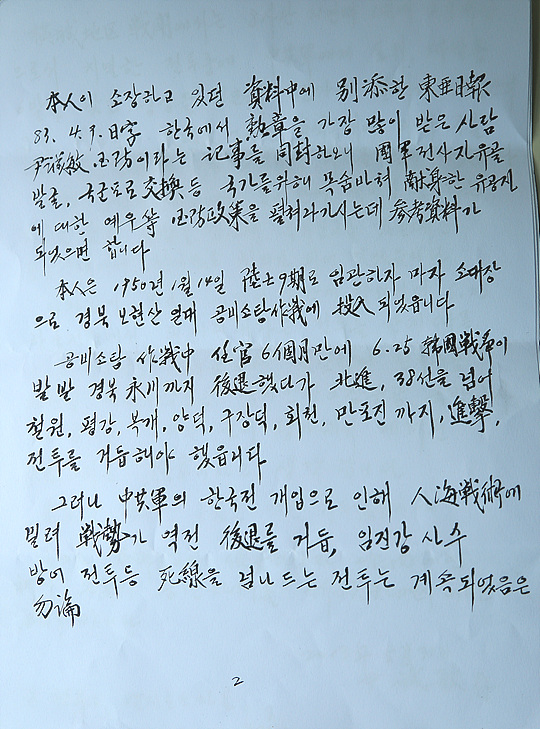 本人이 소장하고 있던 資料中에 別添한 東亜日報
83. 4. 9. 日字 한국에서 勲章을 가장 많이 받은 사람
尹 이라는 記事를 同封하오니 國軍전사자유골
발굴, 국군포로 交換등 국가를위해 목숨바쳐 献身한 유공자
에 대한 예우等 政策을 펼쳐나가시는데 参考資料가
되었으면 합니다
本人은 1950년 1월 14일 陸士9期로 임관하자 마자 소대장
으로 경북 보현산 일대 공비소탕作戦에 投入 되었읍니다
공비소탕 作戦中 任官 6個月만에 6.25 韓國戦争이
발발 경북 永川까지 後退했다가 北進, 38선을 넘어
철원, 평강, 복개, 양덕, 구장덕, 회천, 만포진 까지, 進撃,
전투를 거듭해야 했읍니다
그러나 中共軍의 한국전 개입으로 인해 人海戦術에
밀려 戦勢가 역전 後退를 거듭, 임진강 사수
방어 전투등 死線을 넘나드는 전투는 계속되었음은
勿論
2